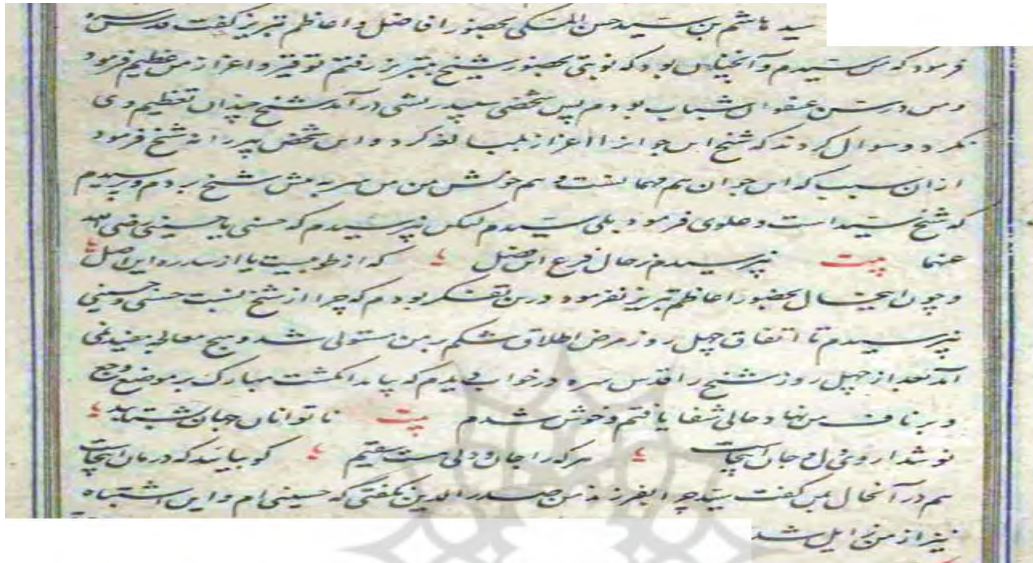 سید هاشم بن سید حسن المکی بحضور افاضل و اعاظم تبریز گفت قدس سره
فرمود که من سیدم و آنچنان بود که نوبتی بحضور شیخ به تبریز رفتم توقیر و اعزاز من عظیم فرمود
و من در سن عنفوان شباب بودم پس شخصی سپید ریشی درآمد شیخ چندان تعظیم وی
نکرد و سوال کردند که شیخ این جوانرا اعزاز بلیغ کرد و این شخص پیر را نه شیخ فرمود
از آن سبب که این جوان هم مهمانست و هم خویش من من سر به پیش شیخ بردم و پرسیدم
که شیخ سید است و علوی فرمود بلی سیدم لیکن نپرسیدم که حسنی یا حسینی رضی الله
عنهما بیت نپرسیدم ز حال فرع این فضل که از طوبیست یا از سدره این اصل
و چون اینحال بحضور اعاظم تبریز تقریر نموده درین تفکر بودم که چرا از شیخ نسبت حسنی و حسینی
نپرسیدم تا اتفاق چهل روز مرض اطلاق شکم بر من مستولی شد و هیچ معالجه مفید نمی
آمد بعد از چهل روز شیخ را قدس سره در خواب دیدم که بیامد انگشت مبارک بر موضع وجع
و بر ناف من نهاد و حالی شفا یافتم و خوش شدم بیت ناتوانان جهان بشتابید
نوشداروی دل و جان اینجاست هر که را جان و دلی هست سقیم گو بیاید که درمان اینجاست
هم در آنحال بمن گفت سید چرا بفرزند من صدرالدین نگفتی که حسینی ام و این اشتباه
نیز از من زایل شد